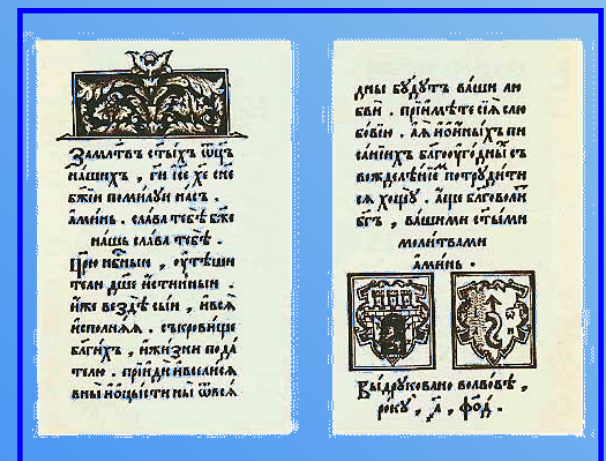 Замл҃твъ ст҃ы́хъ ѿц҃ъ
на́шихъ , гн҃ и і҃се хе҃ сн҃е
бж҃їи поми́луи на́съ .
А҆ми́нь . сла́ва тебѣ̀ бж҃е
на́шь сла́ва тебѣ̀ .
Цр҃ю нб҃ныи , ᲂу҆тѣ́ши
телю дш҃е и҆́стинныи .
и҆́же вездѣ̀ сы́и , и҆всѧ̀
и҆сполнѧ́ѧ . съкро́вище
бл҃ги́хъ , и҆жи́зни пода́
телю . прїидѝ и҆всели́сѧ
вны̀ и҆ѡ҆цы́сти ны̀ ѿвсе́ѧ
дны бꙋ́дꙋтъ ва́ши лю
бви̇̀ . прїимѣ́те сїѧ̀ слю
бо́вїю . а҆́ѧ и҆ѡ҆и҆ны́хъ пи
са́нїихъ бл҃гоᲂуго́дныхъ съ
вожделѣ́нїе потрꙋди́ти
сѧ хощꙋ̀ . а҆́ще бл҃говоли́
бг҃ъ , ва́шими ст҃ы́ми
моли́твами
А҆ми́нь .
Вы́дрꙋковано во́лвовѣ ,
рокꙋ , ҂а҃ , фо҃д .